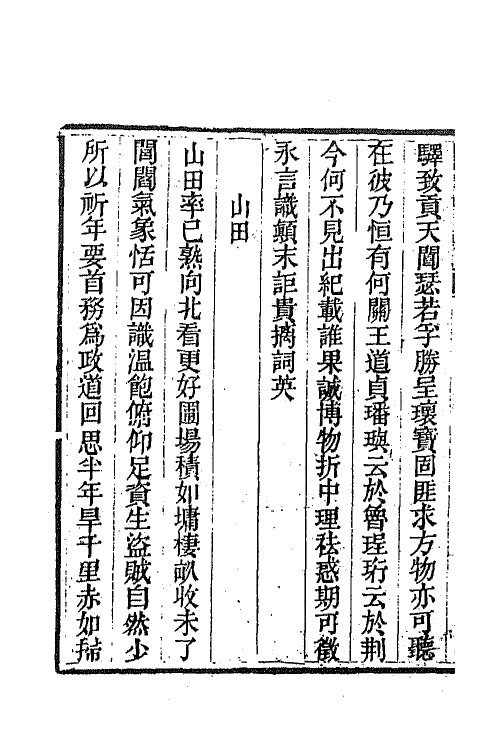 驛致貢天閶瑟若孚勝呈瓌寶固匪求方物亦可聽
在彼乃恒有何關王道貞璠璵云於魯珵珩云於荆
今何不見出紀載誰果誠博物折中理祛惑期可徵
永言識顛末詎貴摛詞英
山田
山田率已熟向北看更好圃場積如墉棲畝收未了
閭閻氣象恬可因識温飽俯仰足資生盜賊自然少
所以祈年要首務爲政道回思半年旱千里赤如掃